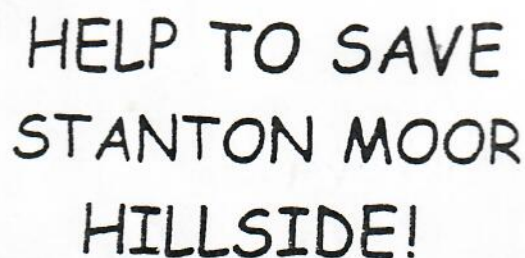 HELP TO SAVE
STANTON MOOR
HILLSIDE!